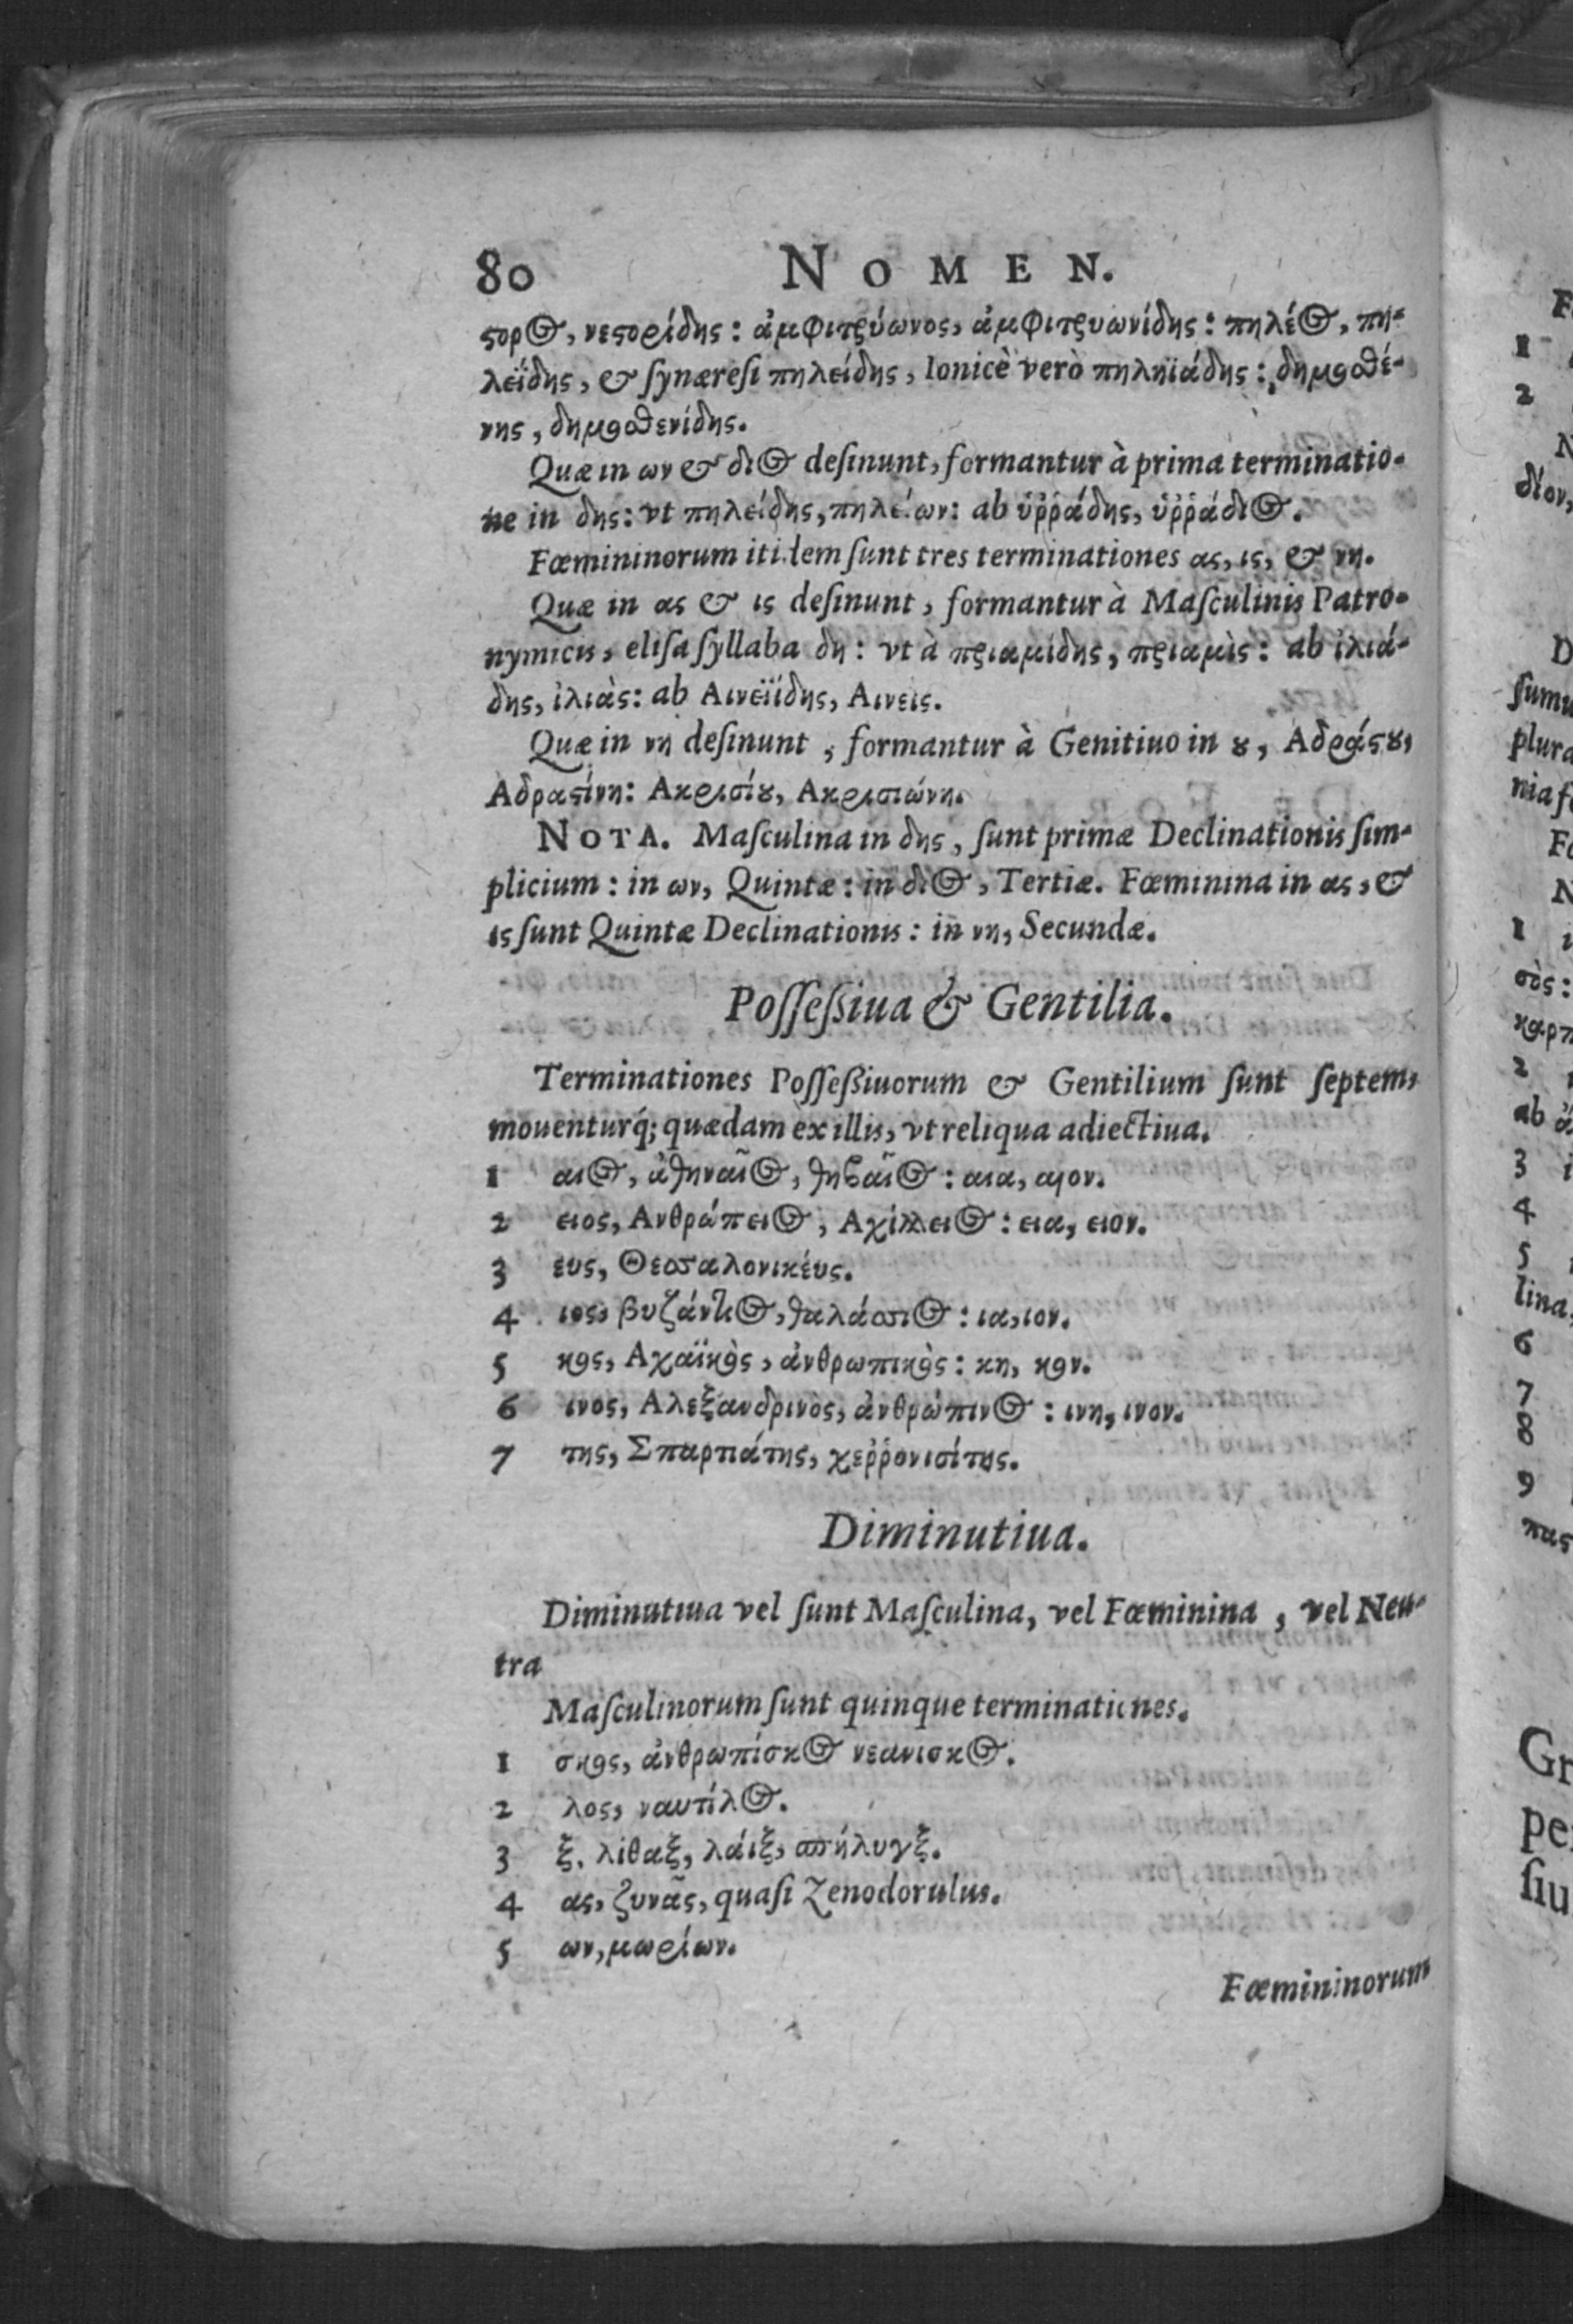 80 NOMEN.
ϛορος, νεϛορίδης: ἀμφιτρύωνος, ἀμφιτρυωνίδης: πηλέος, πη-
λεΐδης, & ſynæreſi πηλείδης, Ionicè verò πηληϊάδης: δημοσθέ-
νης, δημοσθενίδης.
Quæ in ων & διος deſinunt, formantur à prima terminatio-
ne in δης: vt πηλείδης, πηλείων: ab ὑῤῥάδης, ὑῤῥάδιος.
Fœmininorum itidem ſunt tres terminationes ας, ις, & νη.
Quæ in ας & ις deſinunt, formantur à Maſculinis Patro-
nymicis, eliſa ſyllaba δη: vt à πριαμίδης, πριαμὶς: ab ἰλιά-
δης, ἰλιὰς: ab Αινεϊίδης, Αινεις.
Quæ in νη deſinunt, formantur à Genitiuo in ȣ, Αδράϛȣ,
Αδραϛίνη: Ακρισίȣ, Ακρισιώνη.
NOTA. Maſculina in δης, ſunt primæ Declinationis ſim-
plicium: in ων, Quintæ: in διος, Tertiæ. Fœminina in ας, &
ις ſunt Quintæ Declinationis: in νη, Secundæ.
Poſſeßiua & Gentilia.
Terminationes Poſſeßiuorum & Gentilium ſunt ſeptem,
mouenturq́; quædam ex illis, vt reliqua adiectiua.
1 αιος, ἀθηναῖος, θηβαῖος: αια, αιον.
2 ειος, Ανθρώπειος, Αχίλλειος: εια, ειον.
3 ευς, Θεσσαλονικέυς.
4 ιος, βυζάντιος, θαλάσσιος: ια, ιον.
5 κος, Αχαϊκὸς, ἀνθρωπικὸς: κη, κον.
6 ινος, Αλεξανδρινὸς, ἀνθρώπινος: ινη, ινον.
7 της, Σπαρτιάτης, χεῤῥονισίτης.
Diminutiua.
Diminutiua vel ſunt Maſculina, vel Fœminina, vel Neu-
tra
Maſculinorum ſunt quinque terminationes.
1 σκος, ἀνθρωπίσκος νεανισκος.
2 λος, ναυτίλος.
3 ξ. λίθαξ, λάιξ, σπήλυγξ.
4 ας, ζυνᾶς, quaſi Zenodorulus.
5 ων, μωρίων.
Fœmininorum